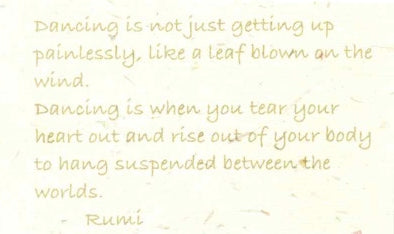 Dancing is not just getting up
painlessly, like a leaf blown on the
wind.
Dancing is when you tear your
heart out and rise out of your body
to hang suspended between the
worlds.
Rumi